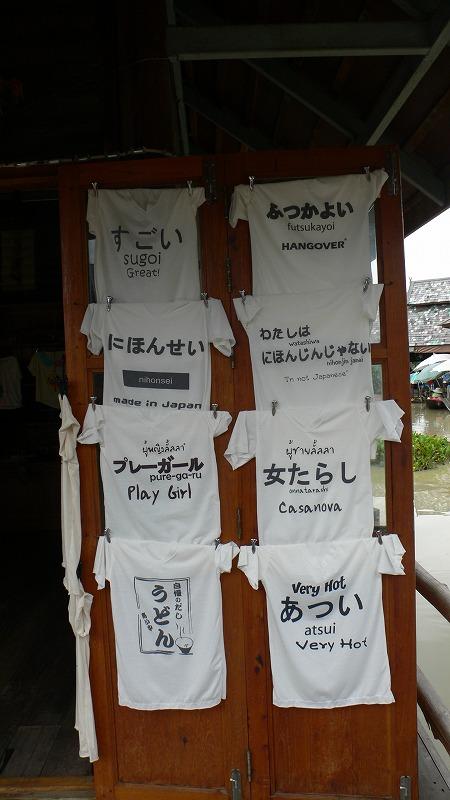 すごい
sugoi
Great!
ふつかよい
futsukayoi
HANGOVER"
にほんせい
nihonsei
made in Japan
わたしは
watashiwa
にほんじんじゃない
nihonjin janai
"I'm not Japanese"
ผู้หญิงลั้ลลา
プレーガール
pure-ga-ru
Play Girl
ผู้ชายลั้ลลา
女たらし
onnatarashi
Casanova
自慢のだし
うどん
Very Hot
あつい
atsui
Very Hot